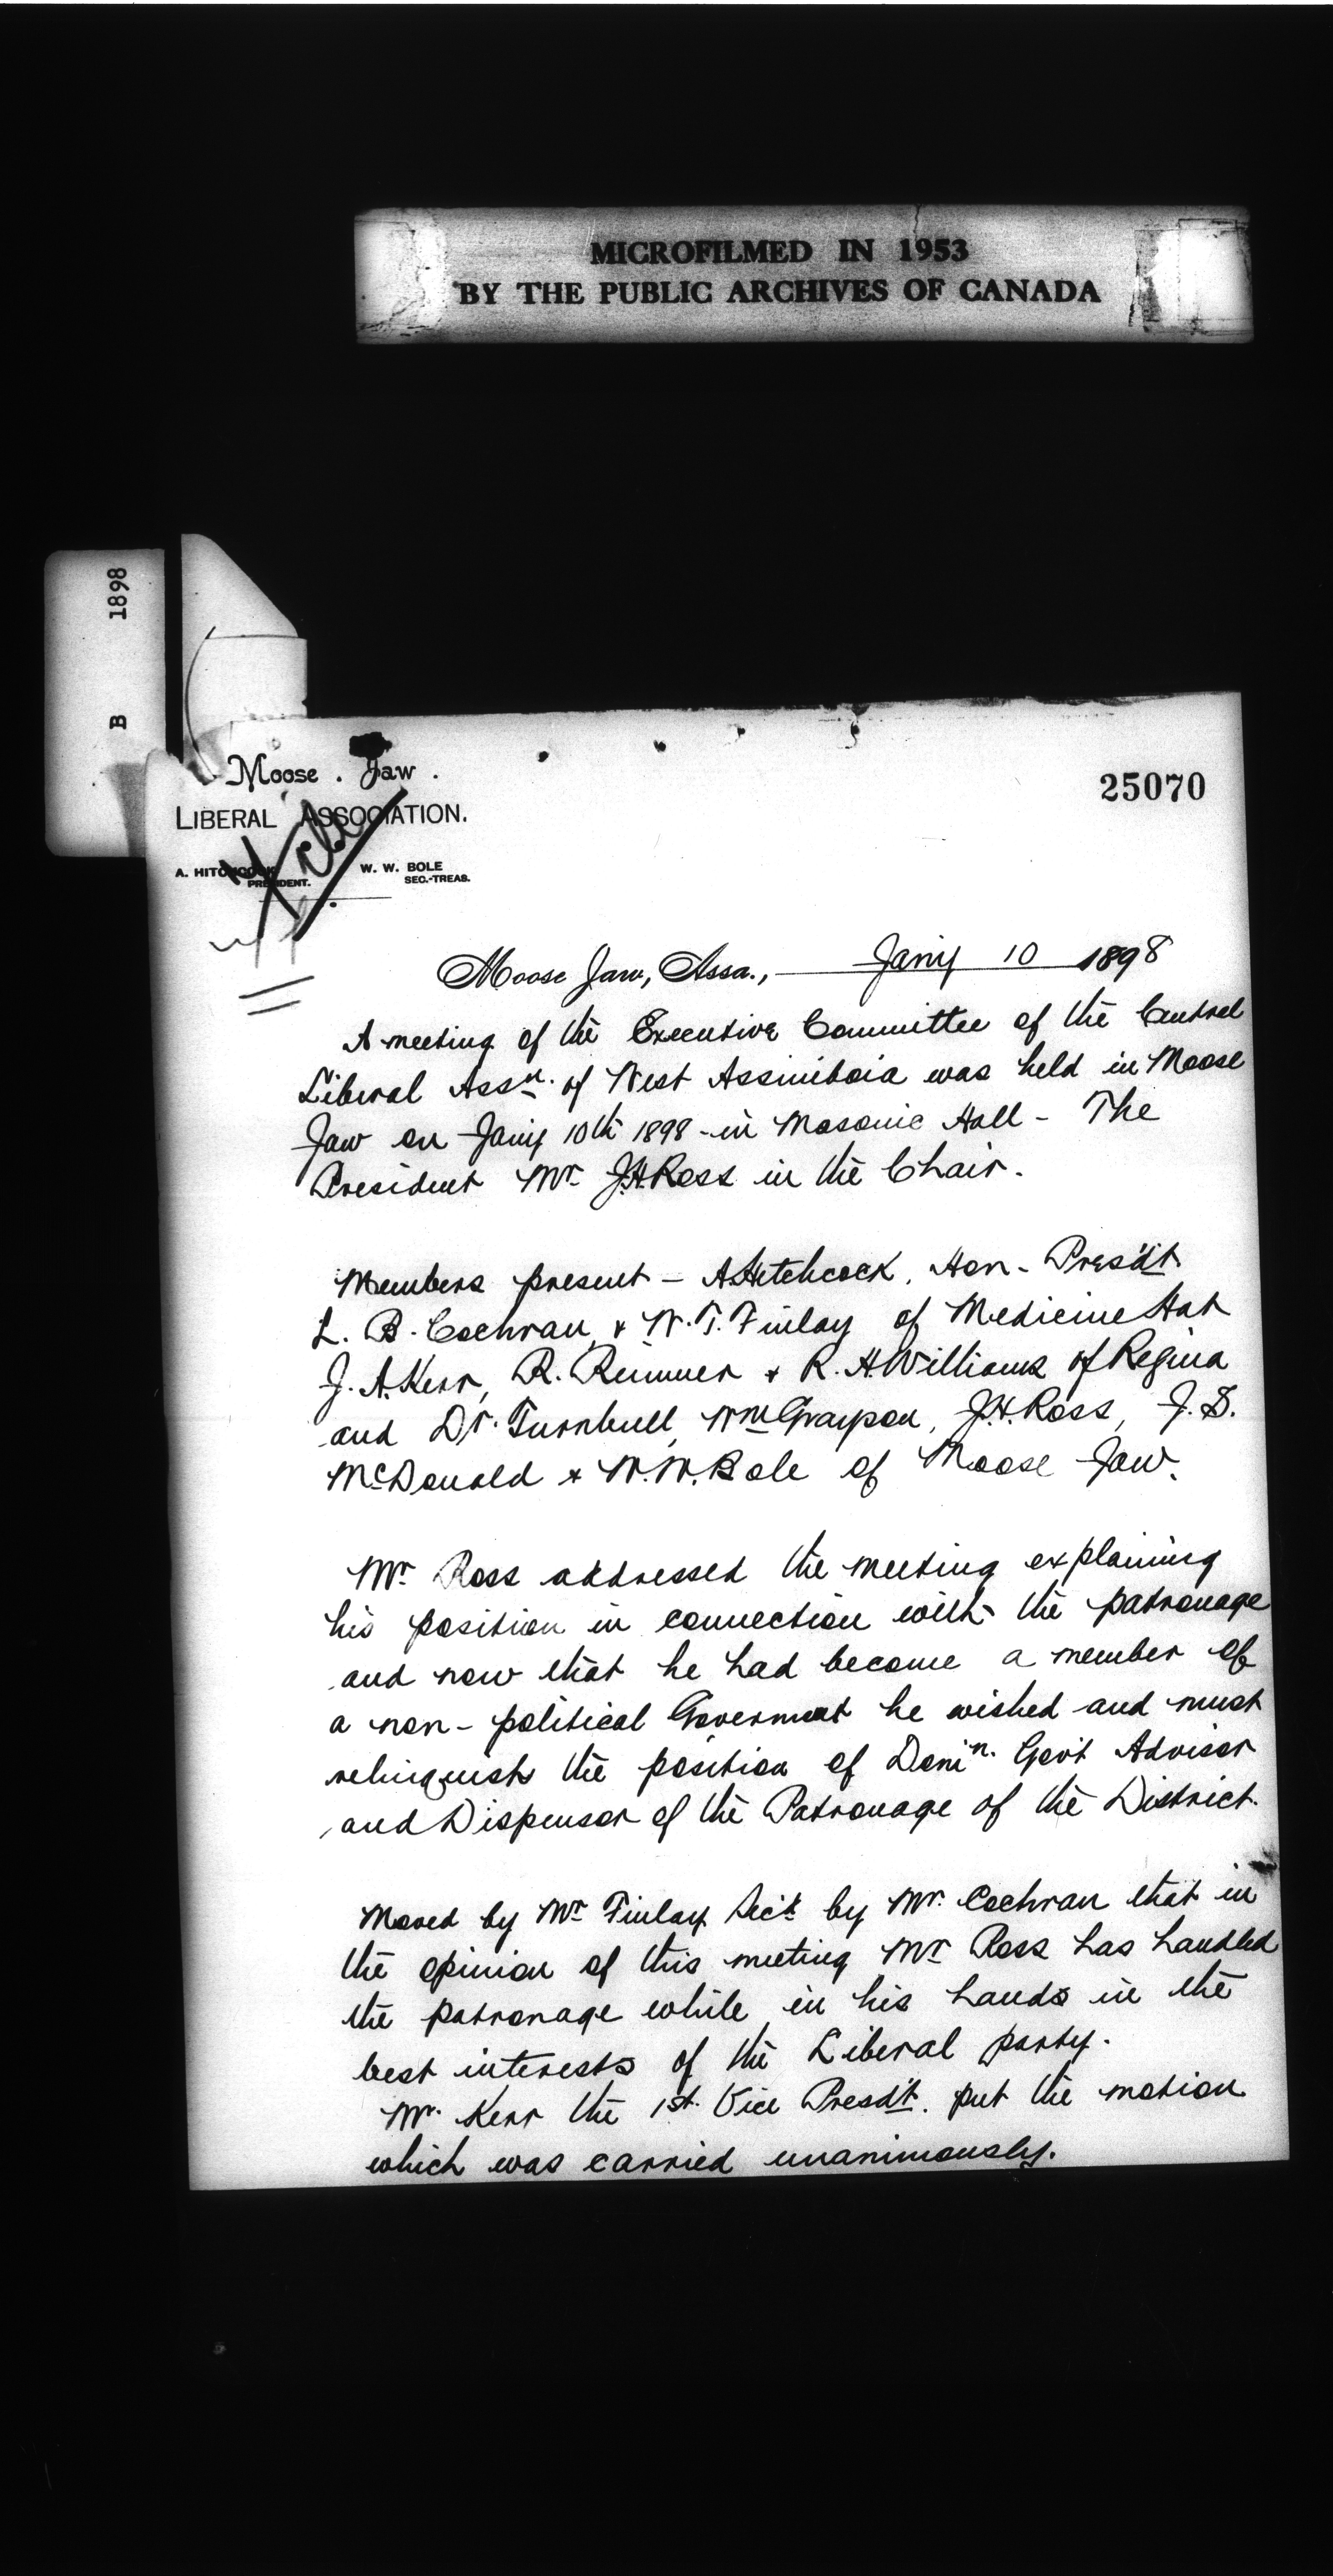 MICROFILMED IN 1953
BY THE PUBLIC ARCHIVES OF CANADA
B 1898
Moose . Jaw .
LIBERAL ASSOCIATION.
25070
A. HITCHCOCK
PRESIDENT.
W. W. BOLE
SEC.-TREAS.
Moose Jaw, Assa., Jany 10 1898
A meeting of the Executive Committee of the Central
Liberal Assn. of West Assiniboia was held in Moose
Jaw on Jany 10th 1898 - in Masonic Hall - The
President Mr J.H. Ross in the Chair.
Members present - A. Hitchcock, Hon - Pres'd't
L. B. Cochran, & W. T. Finlay of Medicine Hat
J. A. Kerr, R. Rimmer & R. H. Williams of Regina
and Dr. Turnbull, Wm Grayson, J.H. Ross, J. S.
McDonald & W. W. Bole of Moose Jaw.
Mr Ross addressed the meeting explaining
his position in connection with the patronage
and now that he had become a member of
a non-political Government he wished and must
relinquish the position of Domn. Gov't Advisor
and Dispensor of the Patronage of the District.
Moved by Mr Finlay Sec'd by Mr. Cochran that in
the opinion of this meeting Mr Ross has handled
the patronage while in his hands in the
best interests of the Liberal party.
Mr. Kerr the 1st. Vice Presd't. put the motion
which was carried unanimously.